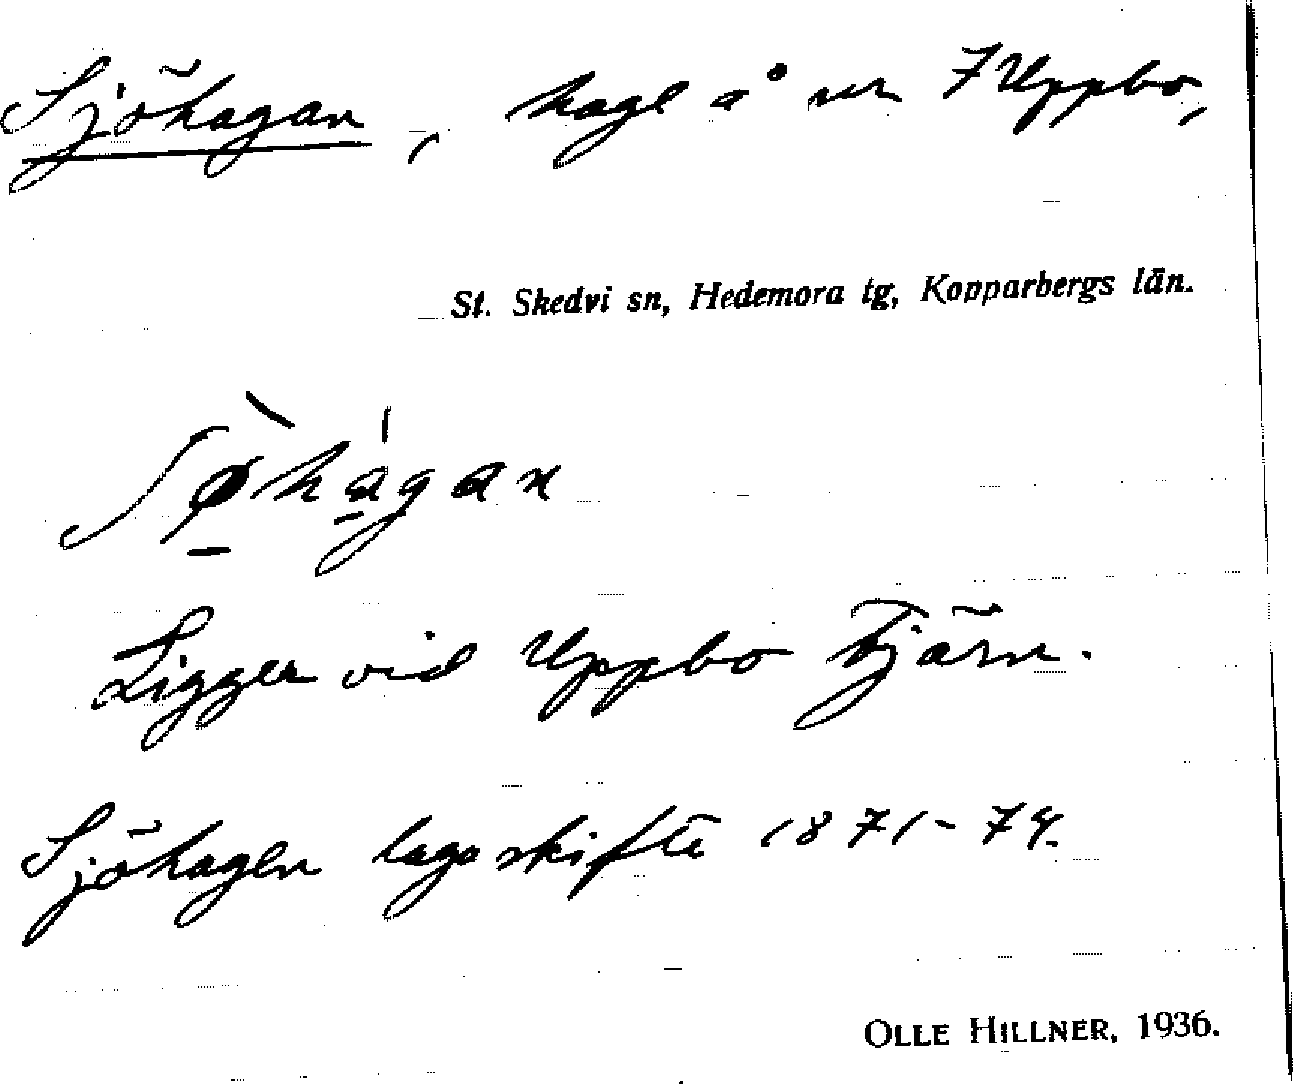 Sjöhagan, hage å nr 7 Uppbo,
St. Skedvi sn, Hedemora tg, Kopparbergs län.
Ligger vid Uppbo Tjärn.
Sjöhagen laga skifte 1871-74.
OLLE HILLNER, 1936.